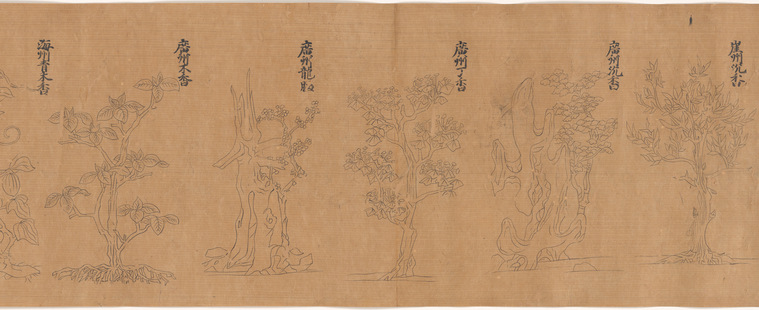 崖州沉香
廣州沉香
廣州丁香
廣州龍脳
廣州木香
海州青木香